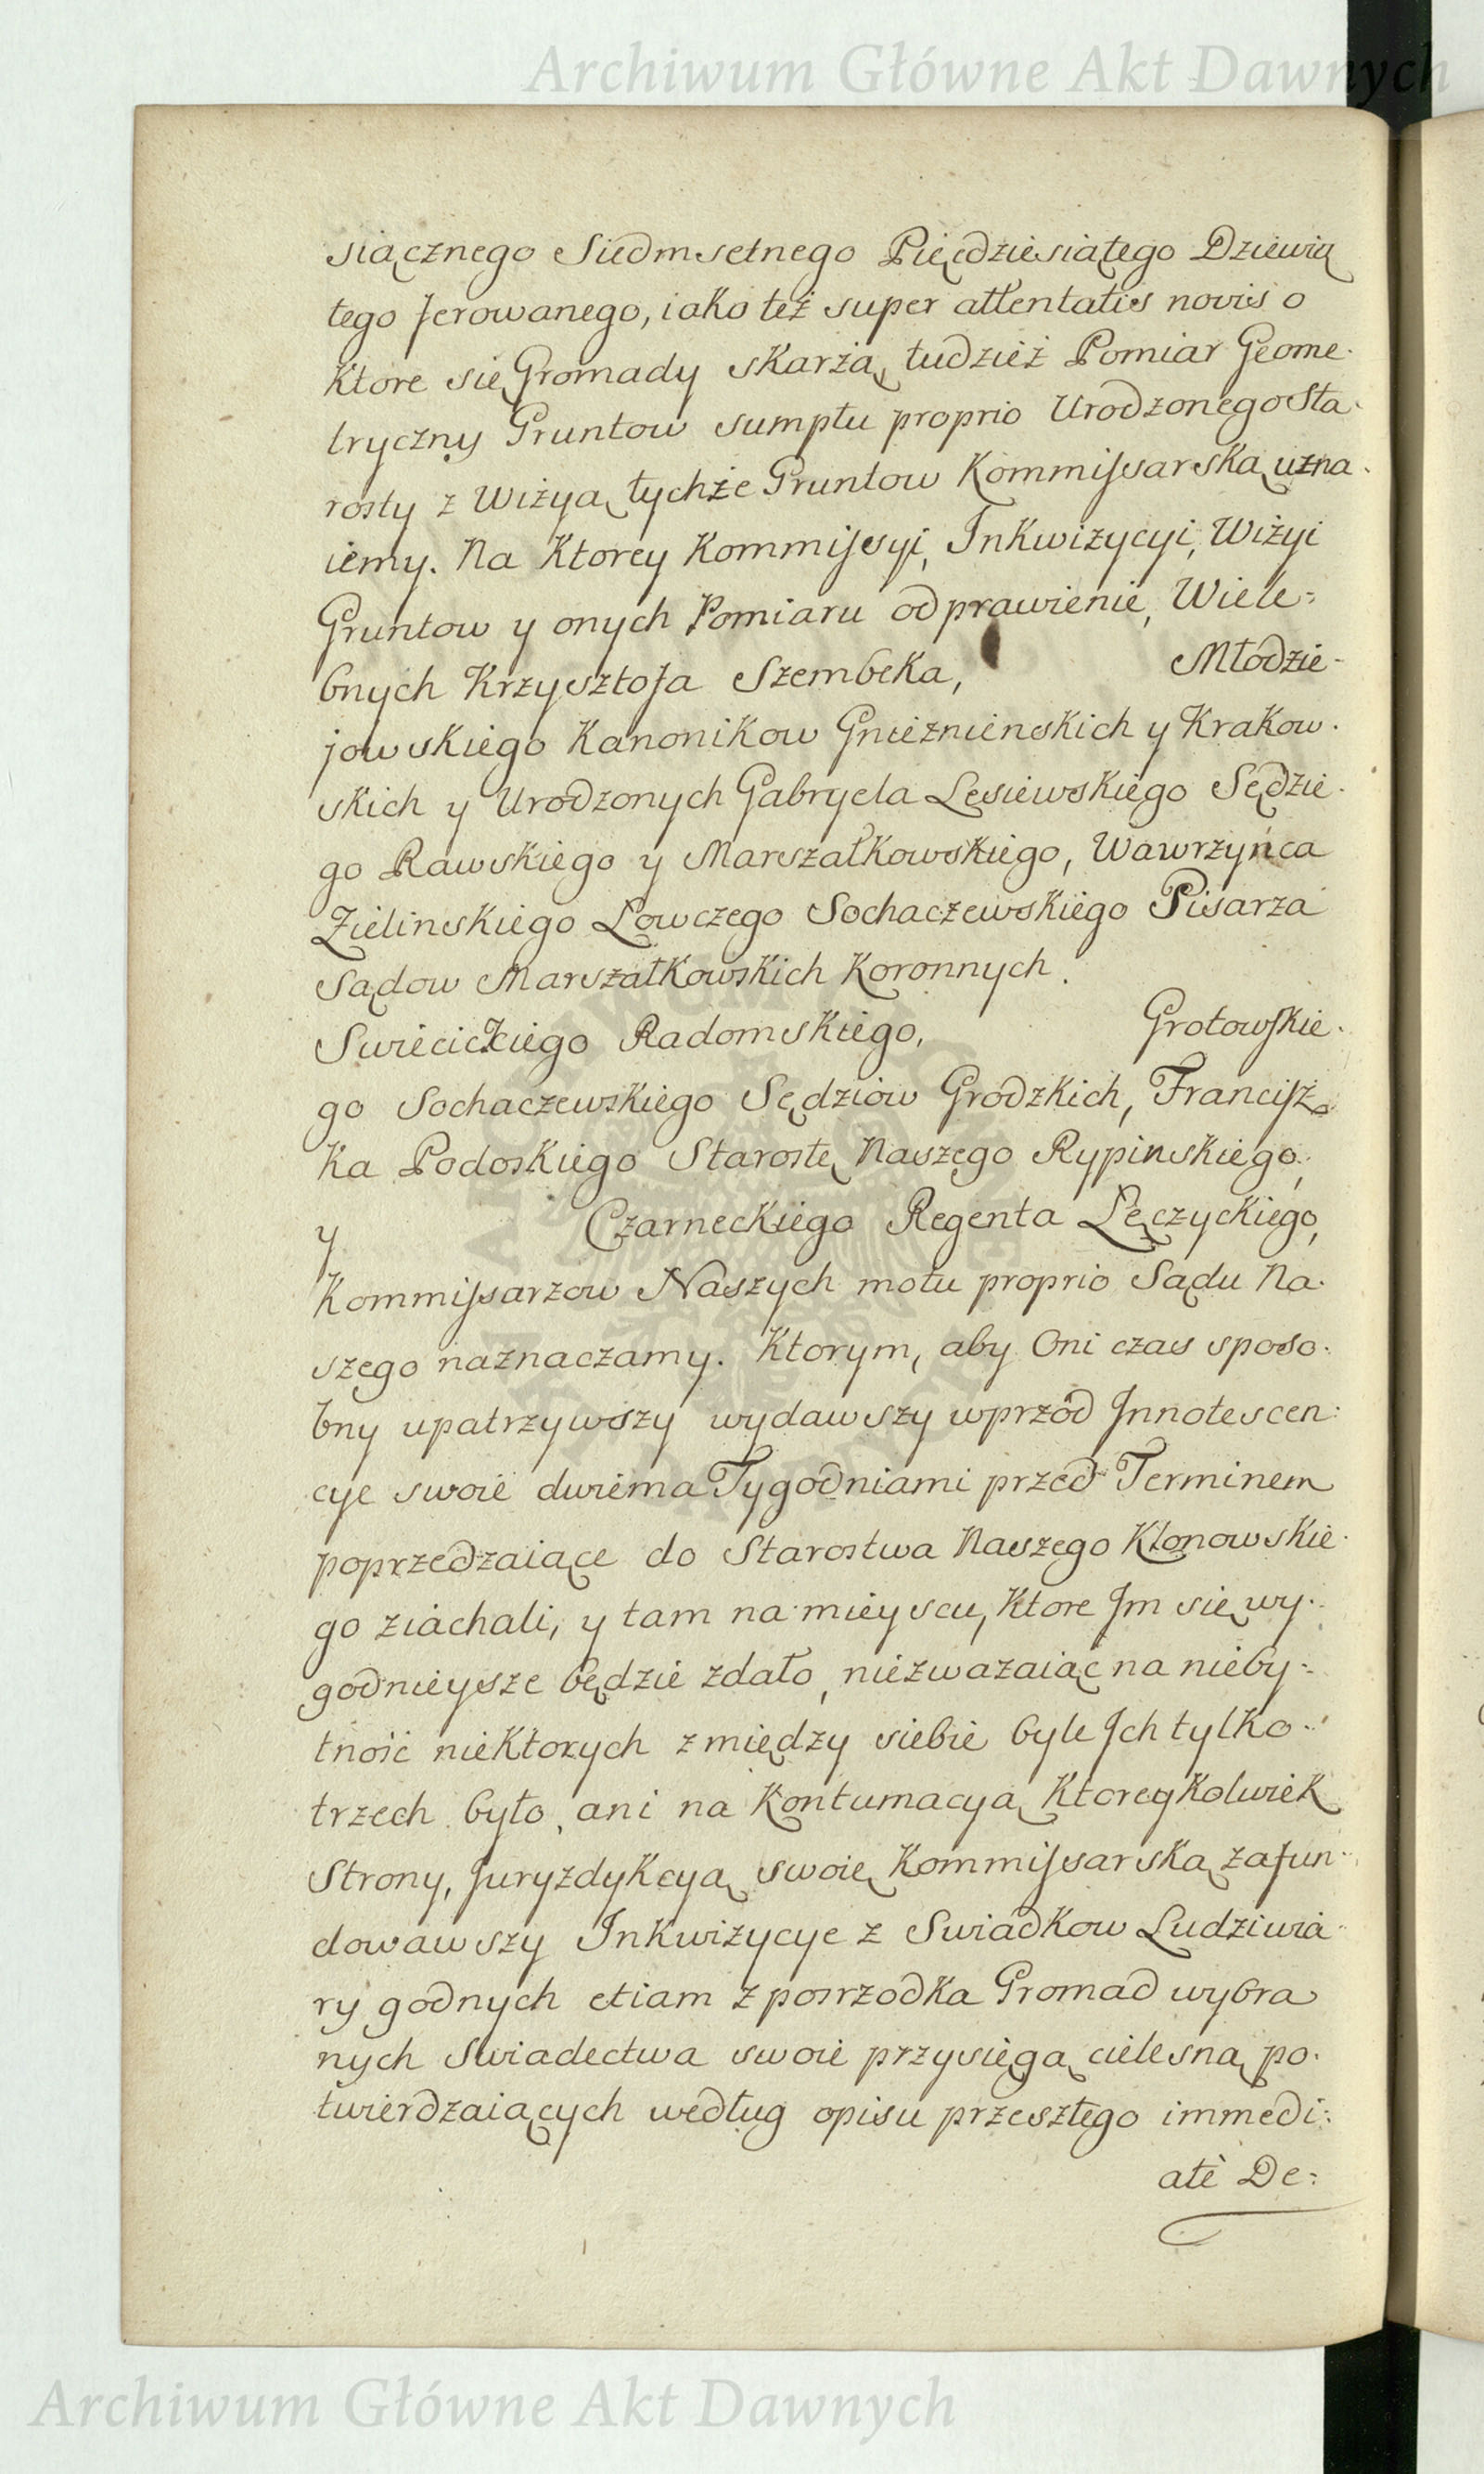 Archiwum Główne Akt Dawnych
siącznego Siedmsetnego Pięćdziesiątego Dziewią
tego ferowanego, iako też super attentatis novis o
Ktore się Gromady skarżą, tudzież Pomiar Geome-
tryczny Gruntow sumptu proprio Urodzonego Sta-
rosty z Wizyą tychże Gruntow Kommissarską uzna-
iemy. Na Ktorey Kommissyi, Inkwizycyi, Wizyi
Gruntow y onych Pomiaru odprawienie, Wiele=
bnych Krzysztofa Szembeka, Młodzie-
jowskiego Kanonikow Gnieznienskich y Krakow-
skich y Urodzonych Gabryela Lesiewskiego Sędzie-
go Rawskiego y Marszałkowskiego, Wawrzyńca
Zielinskiego Łowczego Sochaczewskiego Pisarza
Sądow Marszałkowskich Koronnych.
Swiecickiego Radomskiego, Grotowskie-
go Sochaczewskiego Sędziow Grodzkich, Francisz-
ka Podoskiego Starostę Naszego Rypinskiego,
y Czarneckiego Regenta Łęczyckiego,
Kommissarzow Naszych motu proprio Sądu Na-
szego naznaczamy. Ktorym, aby Oni czas sposo-
bny upatrzywszy wydawszy wprzód Innotescen=
cye swoie dwiema Tygodniami przed Terminem
poprzedzaiące do Starostwa Naszego Klonowskie-
go ziachali, y tam na mieyscu, Ktore Im się wy-
godnieysze będzie zdało, niezwazaiąc na nieby=
tność niektorych z między siebie byle Ich tylko-
trzech było, ani na Kontumacyą Ktoreykolwiek
Strony, Juryzdykcyą swoię Kommissarską zafun-
dowawszy Inkwizycye z Swiadkow Ludzi wia-
ry godnych etiam z posrzodka Gromad wybra
nych Swiadectwa swoie przysięgą cielesną po-
twierdzaiących według opisu przeszłego immedi=
atè De=
Archiwum Główne Akt Dawnych